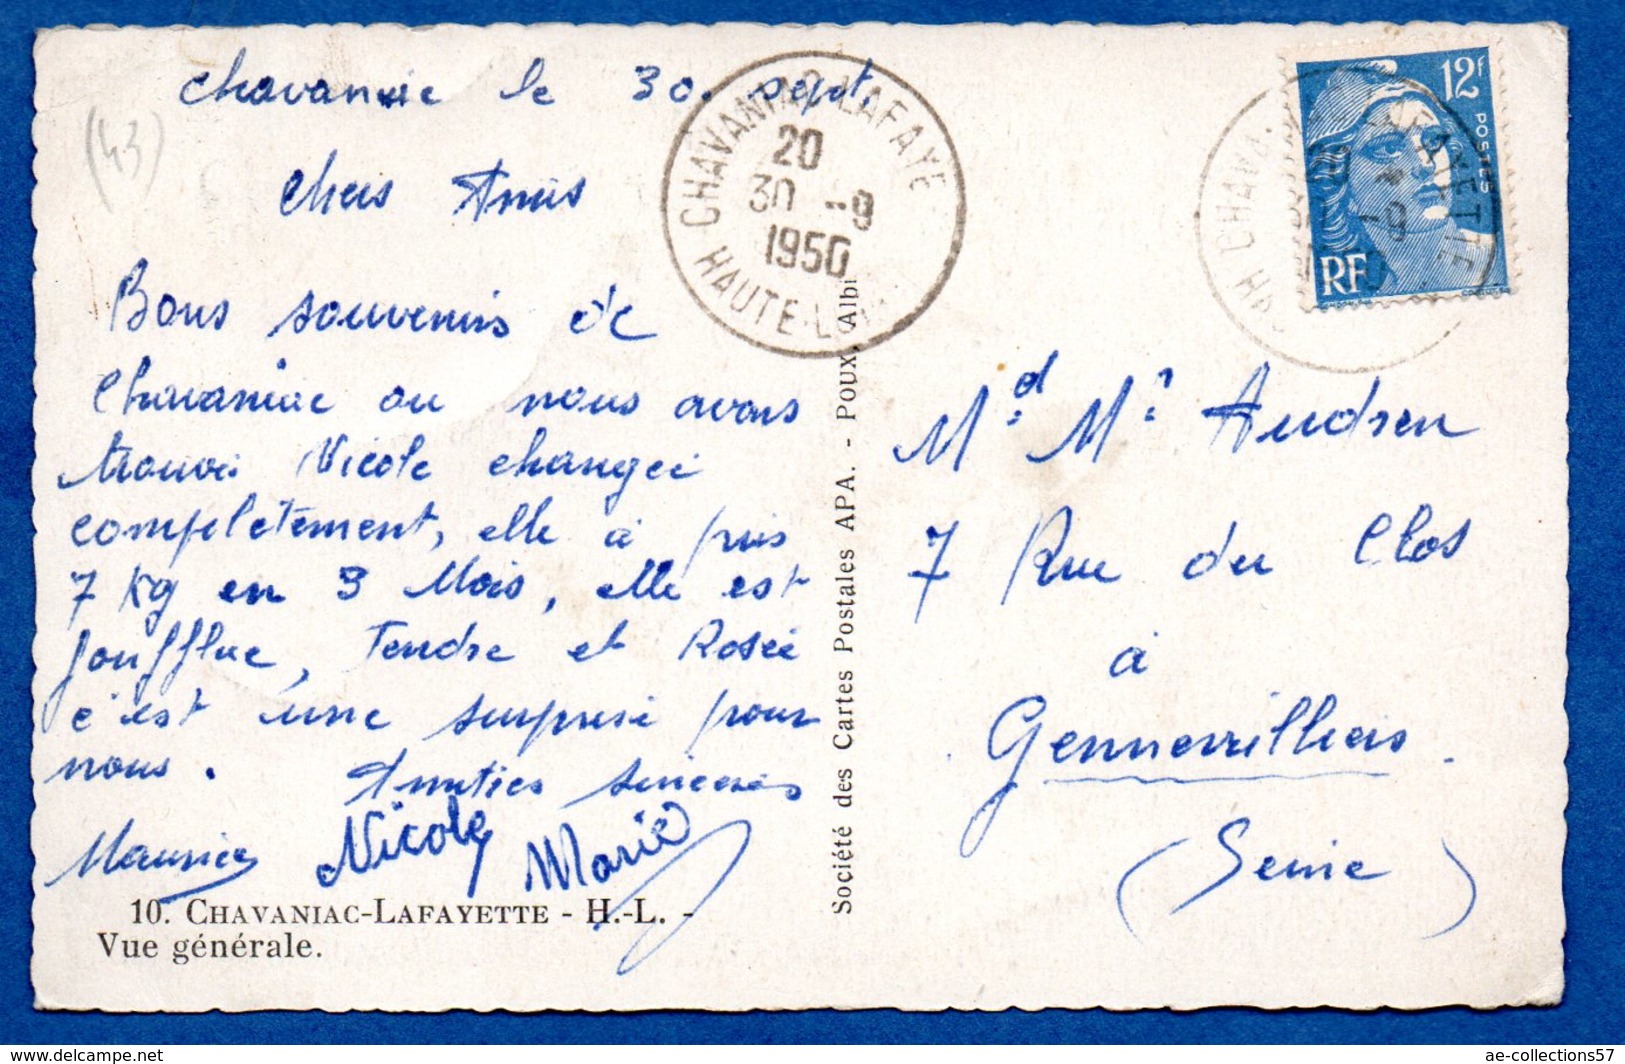 Chavaniac le 30. Sept.
(43)
Chers Amis
Bons souvenirs de
Chavaniac ou nous avons
trouvé Nicole changée
completement, elle à pris
7 Kg en 3 Mois, elle est
Joufflue, Tendre et Rosée
c'est une surprise pour
nous.
Amities sinceres
Maurice Nicole Marie
10. CHAVANIAC-LAFAYETTE - H.-L. -
Vue générale.
CHAVANIAC-LAFAYE
20
30 -9
1950
HAUTE-LOI
Société des Cartes Postales APA. - POUX, Albi
12F
POSTES
RF
Md. Mr. Audren
7 Rue du Clos
à
Gennevilliers.
(Seine)
ae-collections57
www.delcampe.net